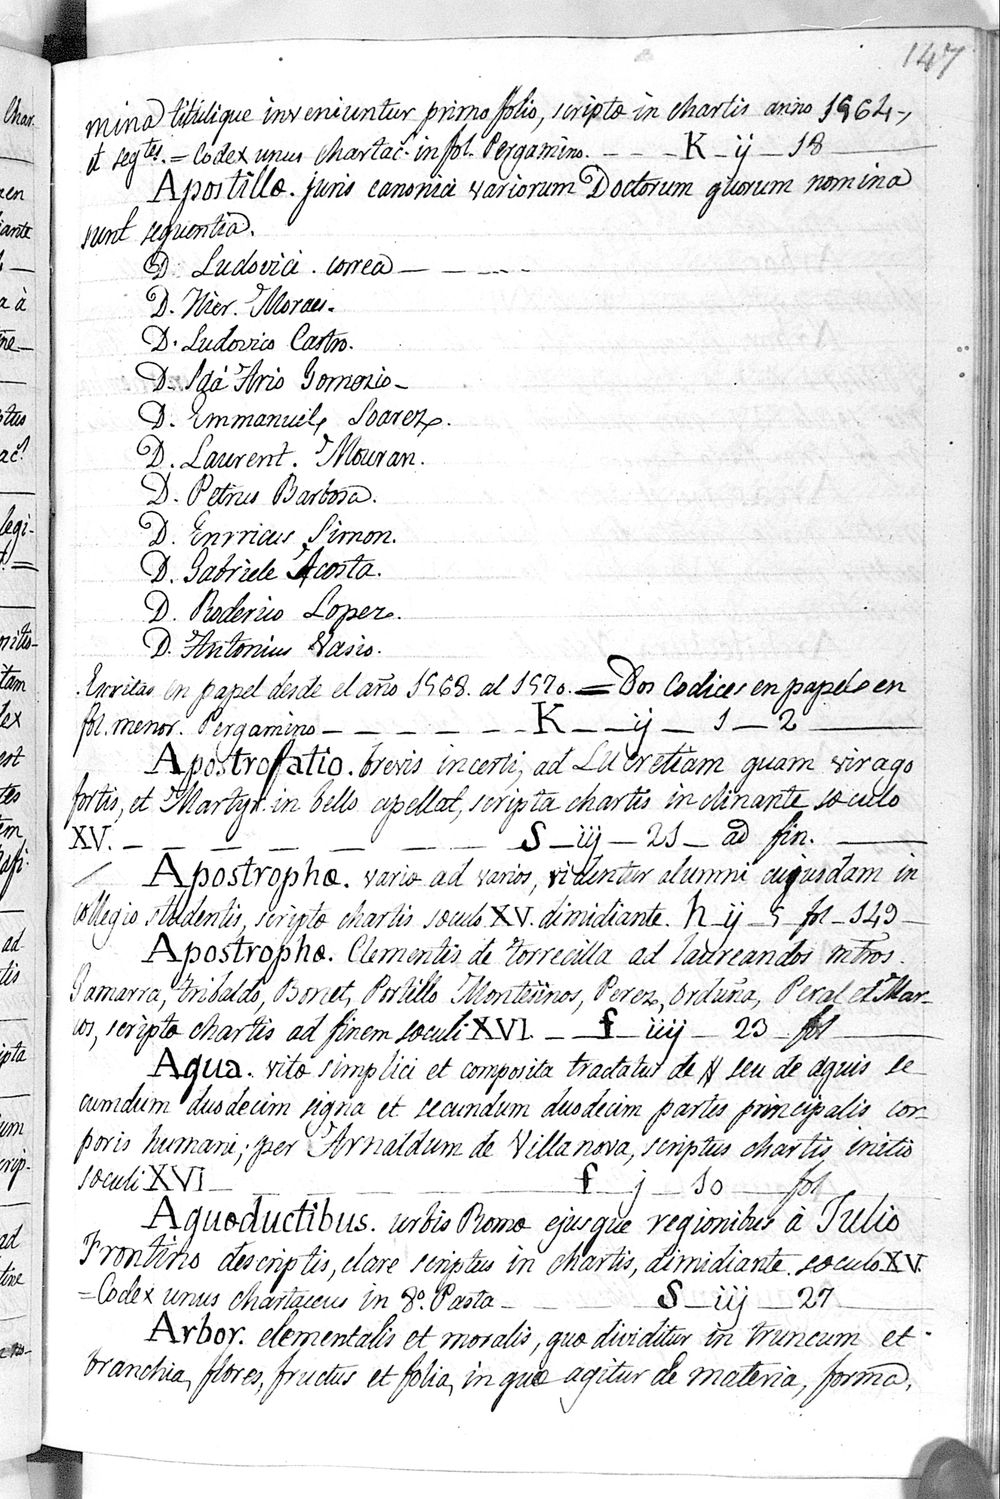 147
mina titulique inveniuntur primo folio, scriptæ in chartis anno 1564,
et segtes. = Codex unus chartac. in fol. Pergamino. - - - K - ij - 18
Apostillæ. juris canonici variorum Doctorum quorum nomina
sunt sequentia.
D. Ludovici. correa - - - - -
D. Hier. Moraes.
D. Ludovico Castro.
D. Ario Gomezio -
D. Emmanuel, Soarez.
D. Laurent. Mouran.
D. Petrus Barbosa.
D. Enrricus Simon.
D. Gabriele Acosta.
D. Roderico Lopez.
D. Antonius Vasio.
Escritas en papel desde el año 1568. al 1570. = Dos Codices en papel en
fol. menor. Pergamino - - - - - - K - ij - 1 - 2
Apostrofatio. brevis incerti, ad Lucretiam quam virago
fortis, et Martyr. in bello apellat, scripta chartis inclinante sæculo
XV. - - - - - - - - S - iij - 21 - ad fin.
Apostrophæ. variæ ad varios, videntur alumni cujusdam in
collegio studentis, scriptæ chartis sæculo XV. dimidiante. h - ij - 5 fol - 149
Apostrophæ. Clementis de Torrecilla ad laureandos mtros.
Gamarra, Tribaldo, Bonet, Portillo Montesinos, Perez, Orduña, Peral et Mar-
cos, scriptæ chartis ad finem sæculi XVI. - - f - iiij - 23 fol
Aqua. vitæ simplici et composita tractatus de seu de aquis se-
cumdum duodecim signa et secundum duodecim partes principalis cor-
poris humani; per Arnaldum de Villanova, scriptus chartis initio
sæculi XVI - - - - - f - j - 10 fol
Aquæductibus. urbis Romæ ejusque regionibus à Julio
Frontino descriptis, clare scriptus in chartis, dimidiante. sæculo XV.
= Codex unus chartaceus in 8º. Pasta - - S - iij - 27
Arbor. elementalis et moralis, quæ dividitur in truncum et
branchia, flores, fructus et folia, in qua agitur de materia, forma,